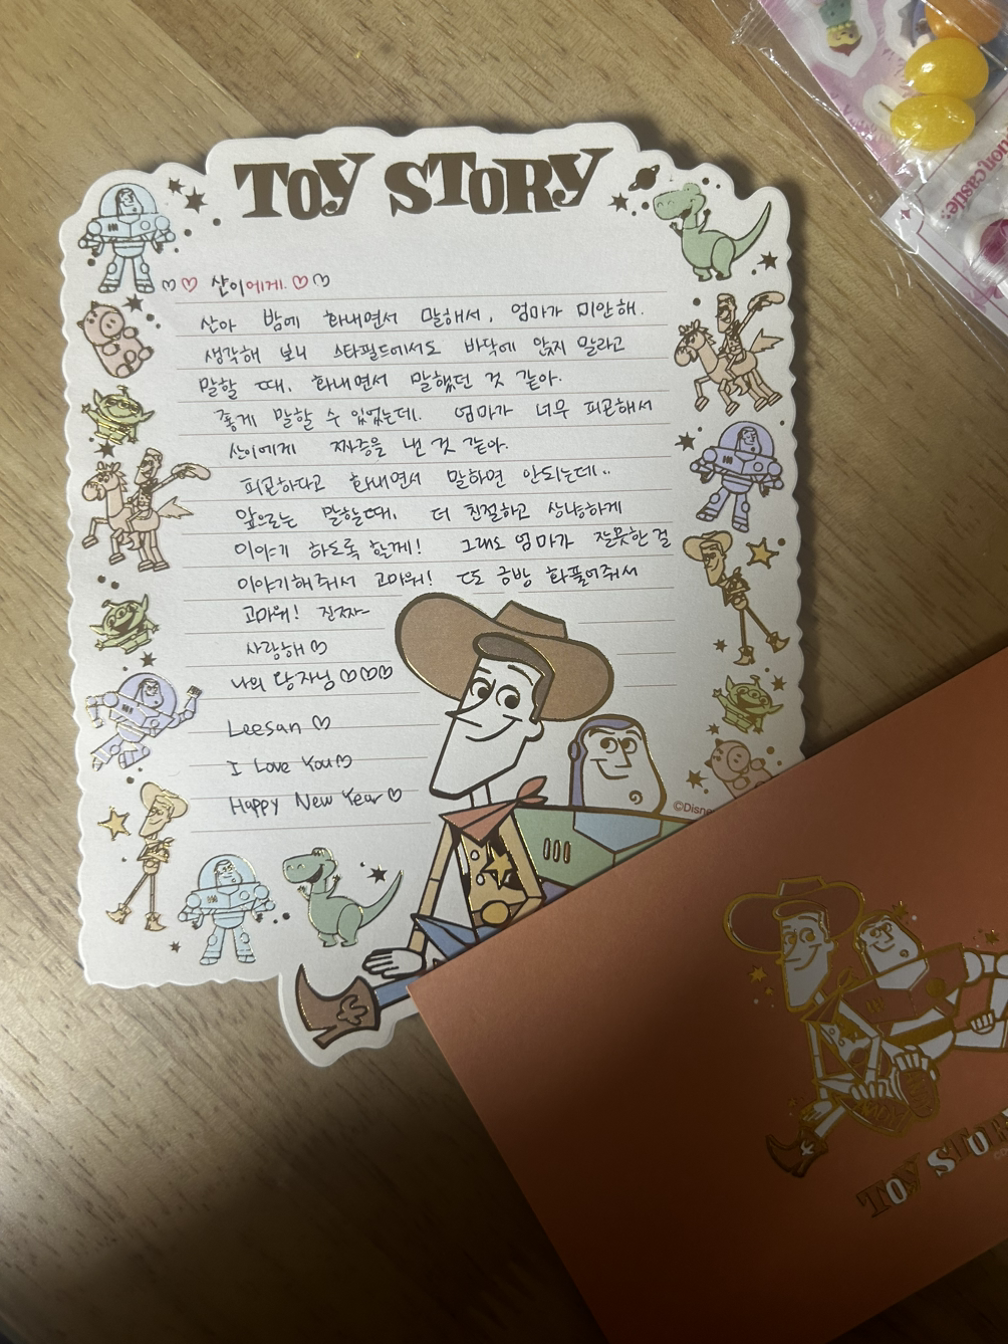 TOY STORY
♡♡ 산이에게. ♡♡
산아 밤에 화내면서 말해서, 엄마가 미안해.
생각해 보니 스타필드에서도 바닥에 앉지 말라고
말할 때, 화내면서 말했던 것 같아.
좋게 말할 수 있었는데. 엄마가 너무 피곤해서
산이에게 짜증을 낸 것 같아.
피곤하다고 화내면서 말하면 안되는데..
앞으로는 말할때, 더 친절하고 상냥하게
이야기 하도록 할께! 그래도 엄마가 잘못한 걸
이야기해줘서 고마워! 또 금방 화풀어줘서
고마워! 진짜~
사랑해 ♡
나의 왕자님 ♡♡♡
Leesan ♡
I Love You♡
Happy New Year ♡
©Disney
TOY STORY